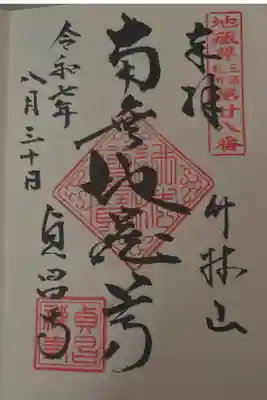 地蔵尊
三浦
札所
第廿八番
奉拝
竹林山
南無地蔵尊
令和七年
八月三十日
貞昌寺